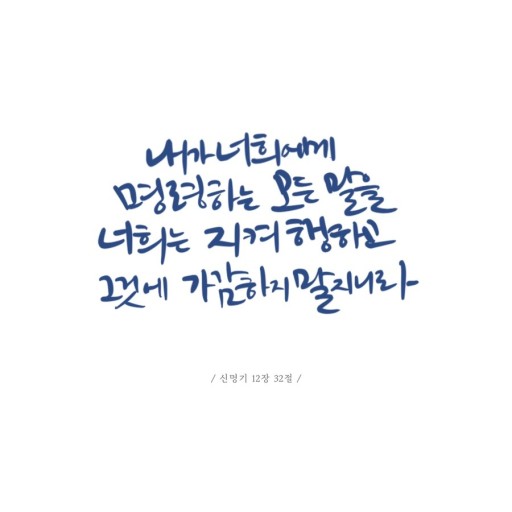 내가 너희에게
명령하는 모든 말을
너희는 지켜 행하고
그것에 가감하지 말지니라
/ 신명기 12장 32절 /